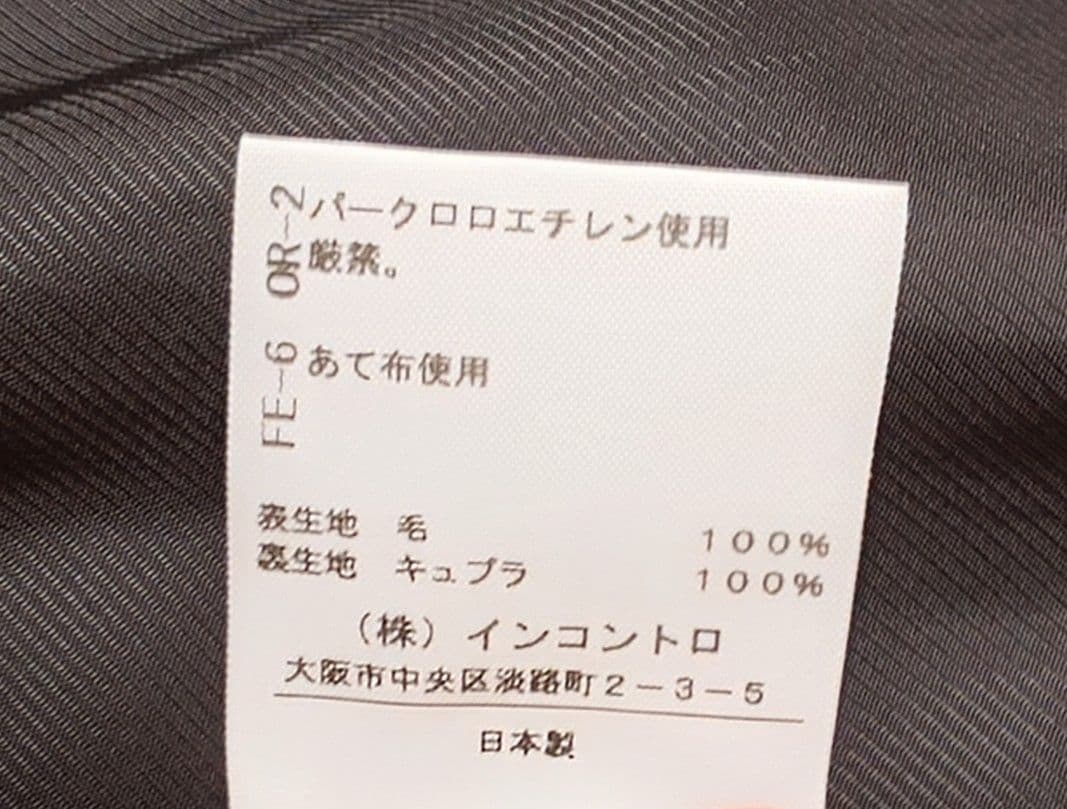 OR-2 パークロロエチレン使用
厳禁。
FE-6 あて布使用
表生地 毛 100%
裏生地 キュプラ 100%
(株)インコントロ
大阪市中央区淡路町2-3-5
日本製